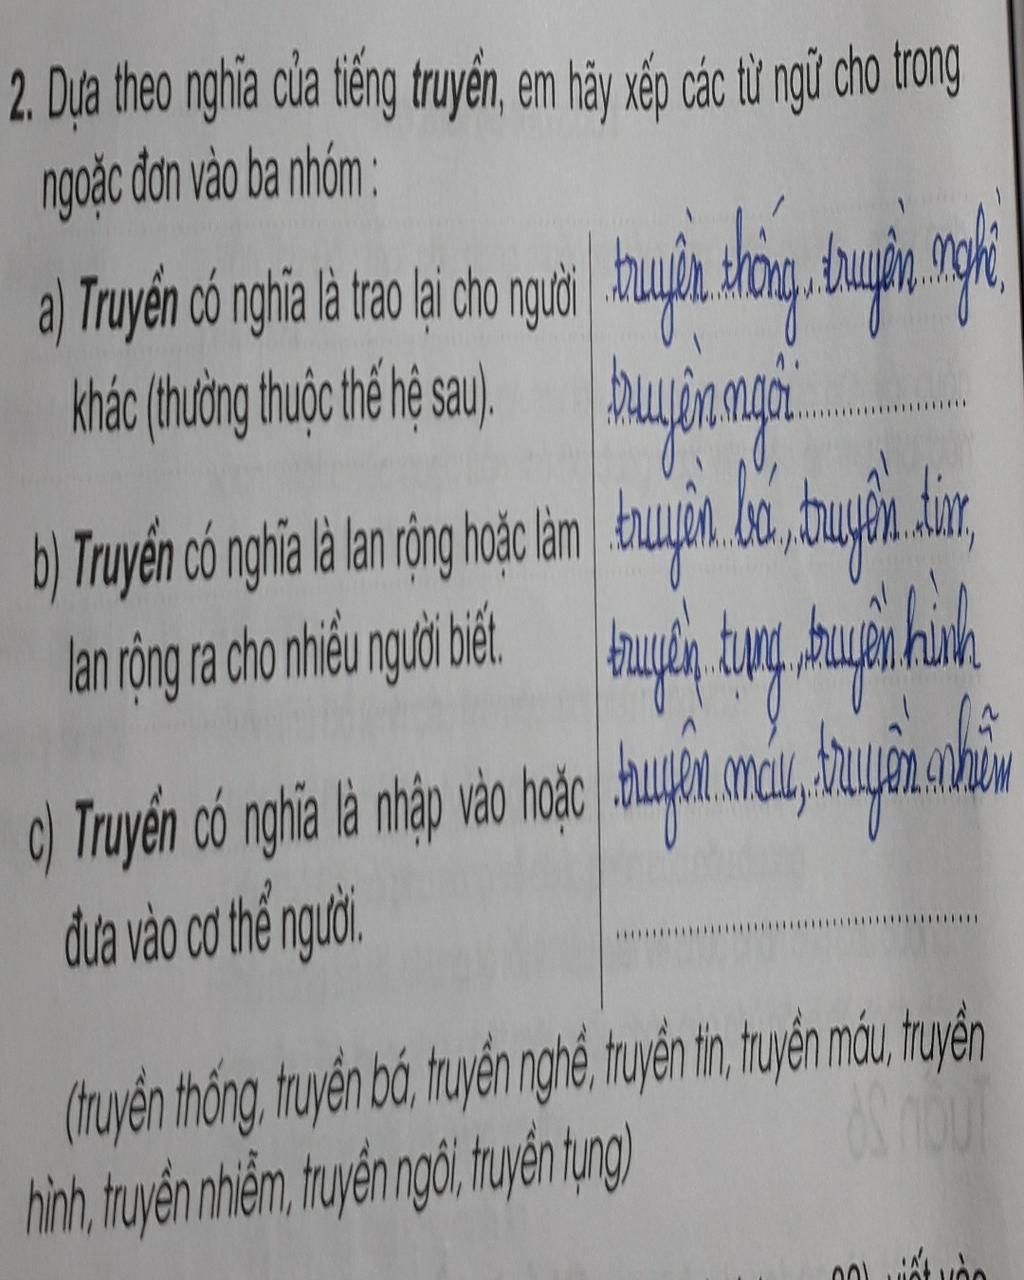 2. Dựa theo nghĩa của tiếng truyền, em hãy xếp các từ ngữ cho trong
ngoặc đơn vào ba nhóm :
a) Truyền có nghĩa là trao lại cho người
khác (thường thuộc thế hệ sau).
truyền thống, truyền nghề,
truyền ngôi
b) Truyền có nghĩa là lan rộng hoặc làm
lan rộng ra cho nhiều người biết.
truyền bá, truyền tin,
truyền tụng, truyền hình
c) Truyền có nghĩa là nhập vào hoặc
đưa vào cơ thể người.
truyền máu, truyền nhiễm
(truyền thống, truyền bá, truyền nghề, truyền tin, truyền máu, truyền
hình, truyền nhiễm, truyền ngôi, truyền tụng)
viết vào